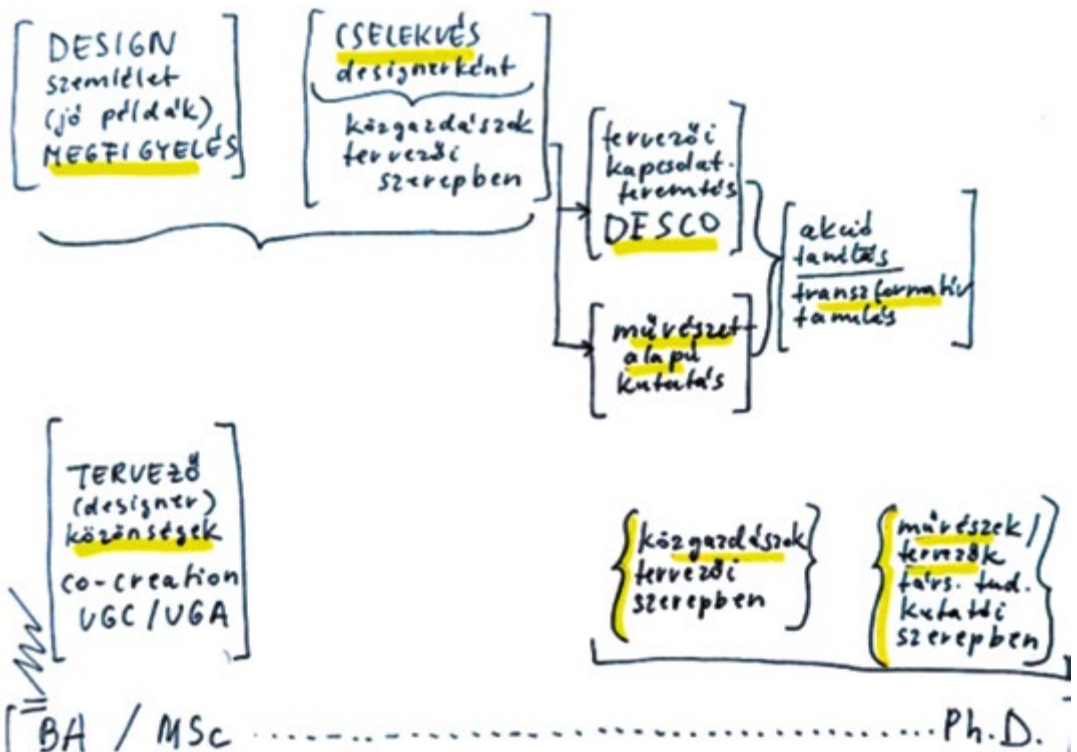 DESIGN
szemlélet
(jó példák)
MEGFIGYELÉS
CSELEKVÉS
designerként
közgazdászok
tervezői
szerepben
tervezői
kapcsolat-
teremtés
DESCO
művészet-
alapú
kutatás
akció
tanítás
transzformatív
tanulás
TERVEZŐ
(designer)
közönségek
co-creation
UGC/UGA
közgazdászok
tervezői
szerepben
művészek/
tervezők
társ. tud.
kutatói
szerepben
BA / MSc ........................................ Ph.D.